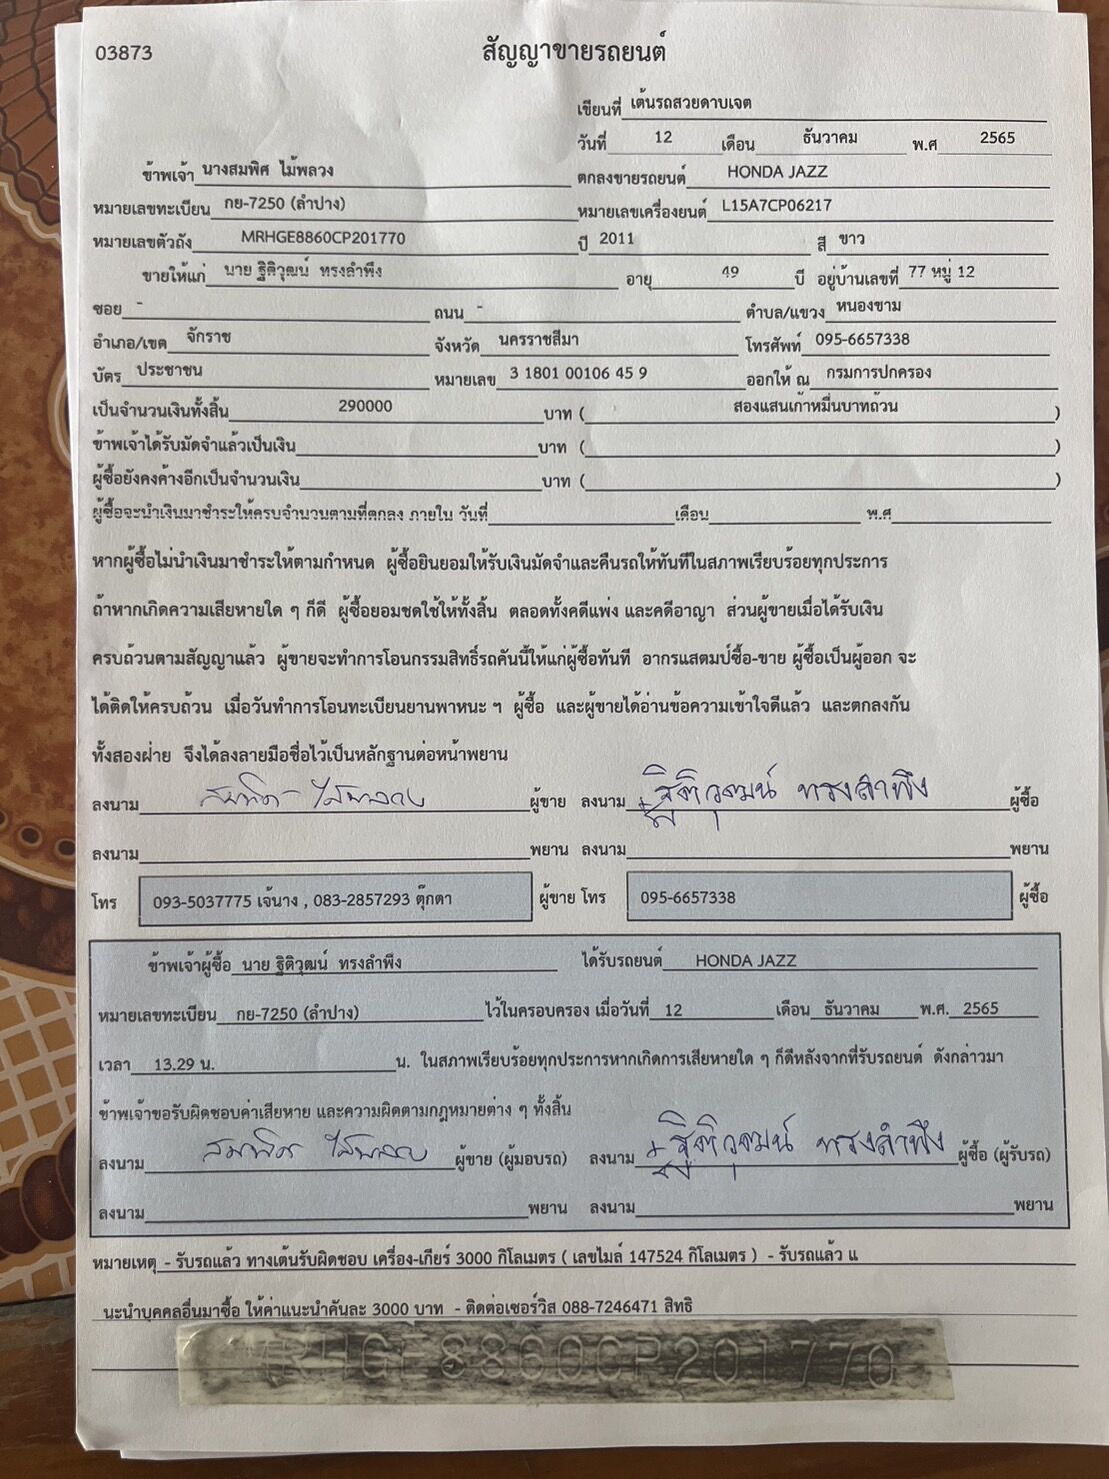 03873
สัญญาขายรถยนต์
เขียนที่ เต้นรถสวยดาบเจต
วันที่ 12 เดือน ธันวาคม พ.ศ 2565
ข้าพเจ้า นางสมพิศ ไม้พลวง ตกลงขายรถยนต์ HONDA JAZZ
หมายเลขทะเบียน กย-7250 (ลำปาง) หมายเลขเครื่องยนต์ L15A7CP06217
หมายเลขตัวถัง MRHGE8860CP201770 ปี 2011 สี ขาว
ขายให้แก่ นาย ฐิติวุฒน์ ทรงลำพึง อายุ 49 ปี อยู่บ้านเลขที่ 77 หมู่ 12
ซอย - ถนน - ตำบล/แขวง หนองขาม
อำเภอ/เขต จักราช จังหวัด นครราชสีมา โทรศัพท์ 095-6657338
บัตร ประชาชน หมายเลข 3 1801 00106 45 9 ออกให้ ณ กรมการปกครอง
เป็นจำนวนเงินทั้งสิ้น 290000 บาท ( สองแสนเก้าหมื่นบาทถ้วน )
ข้าพเจ้าได้รับมัดจำแล้วเป็นเงิน บาท ( )
ผู้ซื้อยังคงค้างอีกเป็นจำนวนเงิน บาท ( )
ผู้ซื้อจะนำเงินมาชำระให้ครบจำนวนตามที่ตกลง ภายใน วันที่ เดือน พ.ศ
หากผู้ซื้อไม่นำเงินมาชำระให้ตามกำหนด ผู้ซื้อยินยอมให้รับเงินมัดจำและคืนรถให้ทันทีในสภาพเรียบร้อยทุกประการ
ถ้าหากเกิดความเสียหายใด ๆ ก็ดี ผู้ซื้อยอมชดใช้ให้ทั้งสิ้น ตลอดทั้งคดีแพ่ง และคดีอาญา ส่วนผู้ขายเมื่อได้รับเงิน
ครบถ้วนตามสัญญาแล้ว ผู้ขายจะทำการโอนกรรมสิทธิ์รถคันนี้ให้แก่ผู้ซื้อทันที อากรแสตมป์ซื้อ-ขาย ผู้ซื้อเป็นผู้ออก จะ
ได้ติดให้ครบถ้วน เมื่อวันทำการโอนทะเบียนยานพาหนะ ฯ ผู้ซื้อ และผู้ขายได้อ่านข้อความเข้าใจดีแล้ว และตกลงกัน
ทั้งสองฝ่าย จึงได้ลงลายมือชื่อไว้เป็นหลักฐานต่อหน้าพยาน
ลงนาม สมพิศ ไม้พลวง ผู้ขาย ลงนาม ฐิติวุฒน์ ทรงลำพึง ผู้ซื้อ
ลงนาม พยาน ลงนาม พยาน
โทร 093-5037775 เจ้นาง , 083-2857293 ตุ๊กตา ผู้ขาย โทร 095-6657338 ผู้ซื้อ
ข้าพเจ้าผู้ซื้อ นาย ฐิติวุฒน์ ทรงลำพึง ได้รับรถยนต์ HONDA JAZZ
หมายเลขทะเบียน กย-7250 (ลำปาง) ไว้ในครอบครอง เมื่อวันที่ 12 เดือน ธันวาคม พ.ศ. 2565
เวลา 13.29 น. น. ในสภาพเรียบร้อยทุกประการหากเกิดการเสียหายใด ๆ ก็ดีหลังจากที่รับรถยนต์ ดังกล่าวมา
ข้าพเจ้าขอรับผิดชอบค่าเสียหาย และความผิดตามกฎหมายต่าง ๆ ทั้งสิ้น
ลงนาม สมพิศ ไม้พลวง ผู้ขาย (ผู้มอบรถ) ลงนาม ฐิติวุฒน์ ทรงลำพึง ผู้ซื้อ (ผู้รับรถ)
ลงนาม พยาน ลงนาม พยาน
หมายเหตุ - รับรถแล้ว ทางเต้นรับผิดชอบ เครื่อง-เกียร์ 3000 กิโลเมตร ( เลขไมล์ 147524 กิโลเมตร ) - รับรถแล้ว แ
นะนำบุคคลอื่นมาซื้อ ให้ค่าแนะนำคันละ 3000 บาท - ติดต่อเซอร์วิส 088-7246471 สิทธิ
MRHGE8860CP201770